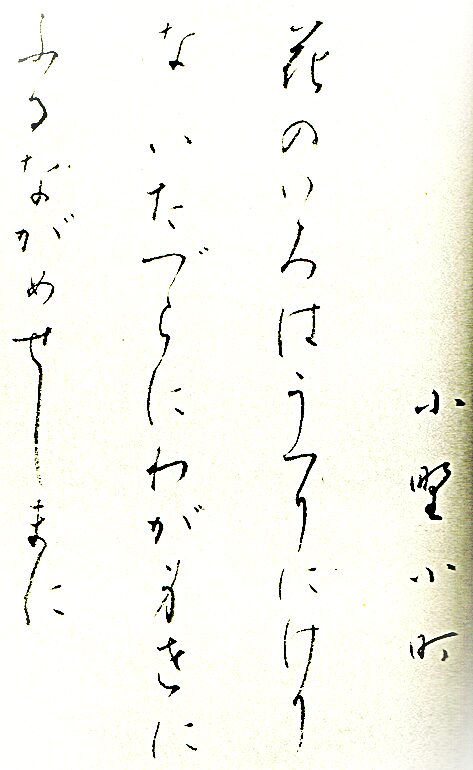 小野小町
花のいろはうつりにけり
ないたづらにわが身世に
ふるながめせしまに